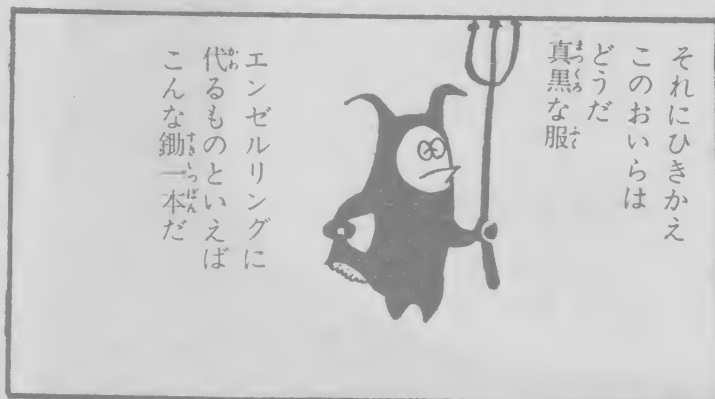 それにひきかえ
このおいらは
どうだ
真黒な服
エンゼルリングに
代るものといえば
こんな鋤一本だ